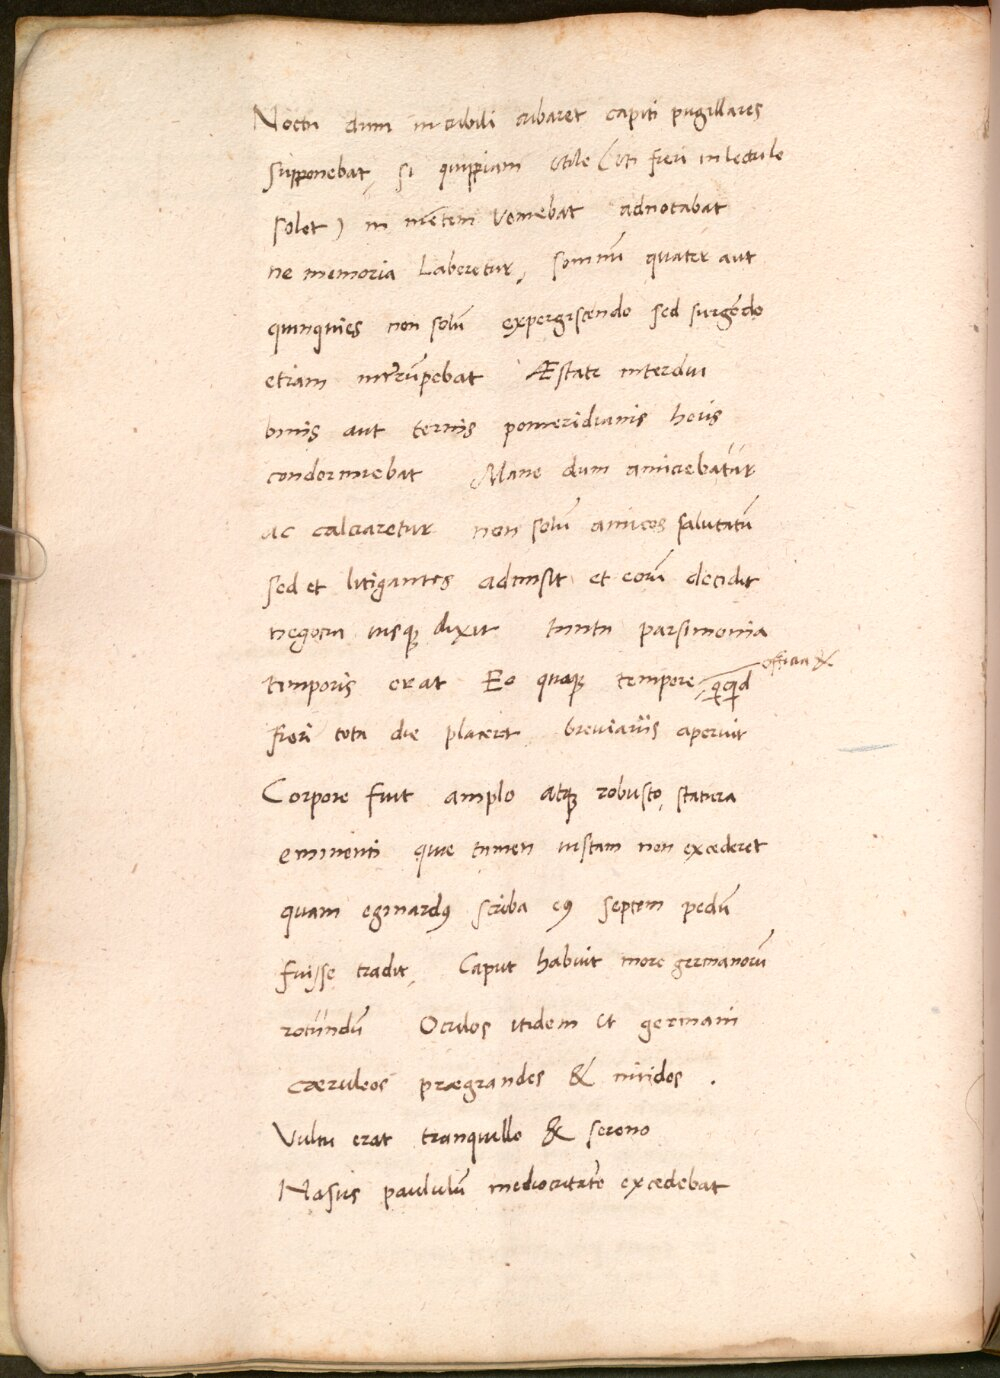 Noctu dum in cubili cubaret capiti pugillares
supponebat, si quippiam utile (uti fieri in lectulo
solet) in mẽtem veniebat adnotabat
ne memoria laberetur, somnũ quater aut
quinquies non solũ expergiscendo sed surgẽdo
etiam interrũpebat Æstate interdiu
binis aut ternis pomeridianis horis
condormiebat Mane dum amiciebatur
ac calciaretur non solũ amicos salutatũ
sed et litigantes admisit et eorũ decidit
negotia iusq; dixit tanta parsimonia
temporis erat Eo quoq; tempore, officia &
qcqd
fieri tota die placeret breviariis aperuit
Corpore fuit amplo atq; robusto, statura
eminenti quae tamen iustam non excederet
quam eginardꝰ scriba eiꝰ septem pedũ
fuisse tradit, Caput habuit more germanorũ
rotundũ Oculos itidem ut germani
cæruleos prægrandes & nitidos .
Vultu erat tranquillo & sereno
Nasus paululũ mediocritatẽ excedebat